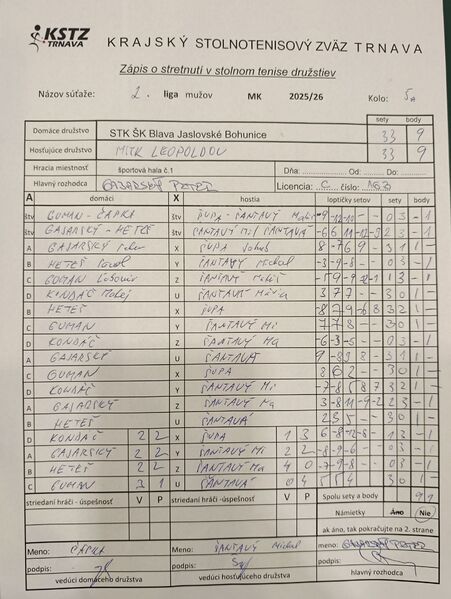 KSTZ TRNAVA
KRAJSKÝ STOLNOTENISOVÝ ZVÄZ TRNAVA
Zápis o stretnutí v stolnom tenise družstiev
Názov súťaže: 2. liga mužov MK 2025/26 Kolo: 5
sety body
Domáce družstvo STK ŠK Blava Jaslovské Bohunice 33 9
Hosťujúce družstvo MSTK LEOPOLDOV 33 9
Hracia miestnosť športová hala č.1 Dňa: Od: Do:
Hlavný rozhodca GAJARSKÝ PETER Licencia: C číslo: 163
A domáci X hostia loptičky setov sety body
štv GUMAN - ČAPKA štv ŠUPA - ŠANTAVÝ 03 - 1
štv GAJARSKÝ - HETEŠ štv ŠANTAVÝ ŠANTAVÁ 23 - 1
A GAJARSKÝ Peter X ŠUPA Jakub 8 -7 6 9 31 1 -
B HETEŠ Pavol Y ŠANTAVÝ Michal -3 -9 -8 03 - 1
C GUMAN Ľubomír Z ŠANTAVÝ 13 - 1
D KONDÁČ Matej U ŠANTAVÁ Mária 3 7 7 30 1 -
B HETEŠ X ŠUPA -8 7 9 -6 8 32 1 -
C GUMAN Y ŠANTAVÝ Mi 7 7 8 30 1 -
D KONDÁČ Z ŠANTAVÝ Ma -6 -3 -5 03 - 1
A GAJARSKÝ U ŠANTAVÁ 9 -8 9 8 31 1 -
C GUMAN X ŠUPA 8 6 2 30 1 -
D KONDÁČ Y ŠANTAVÝ Mi -7 -8 5 8 7 32 1 -
A GAJARSKÝ Z ŠANTAVÝ Ma 3 -8 11 -9 -2 23 - 1
B HETEŠ U ŠANTAVÁ 2 3 5 30 1 -
D KONDÁČ 2 2 X ŠUPA 1 3 13 - 1
A GAJARSKÝ 2 2 Y ŠANTAVÝ Mi 2 2 -8 -9 -6 03 - 1
B HETEŠ 2 2 Z ŠANTAVÝ Ma 4 0 -7 -9 -8 03 - 1
C GUMAN 3 1 U ŠANTAVÁ 0 4 5 5 4 30 1 -
striedaní hráči - úspešnosť V P striedaní hráči - úspešnosť V P Spolu sety a body 9
Námietky Áno Nie
ak áno, tak pokračujte na 2. strane
Meno: ČAPKA Meno: ŠANTAVÝ Michal meno: GAJARSKÝ PETER
podpis: podpis: podpis:
vedúci domáceho družstva vedúci hosťujúceho družstva hlavný rozhodca